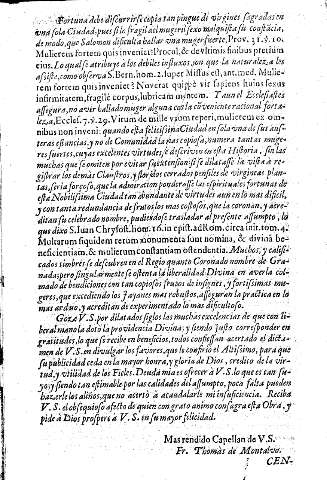 Fortuna debe discurrirse copia tan pingue de virgines sagradas en
una sola Ciudad; pues si lo fragil al mugeril sexo malquista su constãcia,
de modo, que Salomon dificulta hallar una muger fuerte, Prov. 31. v. 10.
Mulierem fortem quis inveniet? Procul, & de ultimis finibus pretium
eius. Lo qual se atribuye à los debiles influxos, con que la naturaleza les
asiste, como observa S. Bern. hom. 2. super Missus est, ant. med. Mulie-
rem fortem quis inveniet? Noverat quippè vir sapiens huius sexus
infirmitatem, fragile corpus, lubricam mentem. Y aun el Eclesiastes
assegura, no aver hallado muger alguna con la cõveniente racional forta-
leza, Eccles. 7. v. 29. Virum de mille vnum reperi, mulierem ex om-
nibus non inveni: quando esta felicissima Ciudad en sola una de sus aus-
teras estancias, y no de Comunidad la mas copiosa, numera tantas muge-
res fuertes, cuyas excelentes virtudes, se descriven en esta Historia, sin las
muchas que se omiten por evitar fastidio; si se dilatasse la vista à re-
gistrar los demàs Claustros, y floridos cerrados pensiles de virgineas plan-
tas, seria forçoso, que la admiracion ponderasse las espirituales fortunas de
esta Nobilissima Ciudad tan abundante de virtudes aun en lo mas dificil,
y con tanta redundancia de frutos los mas costosos, que la coronan, y acre-
ditan su celebrado nombre, pudiendose trasladar al presente assumpto, lo
que dixo S. Juan Chrysost. hom. 16. in epist. ad Rom. circa init. tom. 4.
Moltarum siquidem rerum monumenta sunt nomina, & divinã be-
neficientiam, & mulierum constantiam ostendentia. Muchos, y califi-
cados timbres se descubren en el Regio quanto Coronado nombre de Gra-
nada; pero singularmente se ostenta la liberalidad Divina en averla col-
mado de bendiciones con tan copiosos frutos de insignes, y fortissimas mu-
geres, que excediendo los Jayanes mas robustos, asseguran la practica en lo
mas arduo, y acreditan de experimentado lo mas dificultoso.
Goza V.S. por dilatados siglos las muchas excelencias de que con li-
beral mano la dotò la providencia Divina; y siendo justo corresponder en
gratitudes, lo que se recibe en beneficios, todos confiessan acertado el dicta-
men de V.S. en divulgar los favores, que la confiriò el Altissimo, para que
su publicidad ceda en la mayor honra, y gloria de Dios, credito de la vir-
tud, y utilidad de los Fieles. Deuda mia es ofrecer à V.S. lo que es tan su-
yo; y siendo tan estimable por las calidades del assumpto, poca falta pueden
hazerle los aliños, que no acertò à acaudalarle mi insuficiencia. Reciba
V.S. el obsequioso afecto de quien con grato animo consagra esta Obra, y
pide à Dios prospere à V.S. in su mayor felicidad.
Mas rendido Capellan de V.S.
Fr. Thomàs de Montalvo.
CEN-